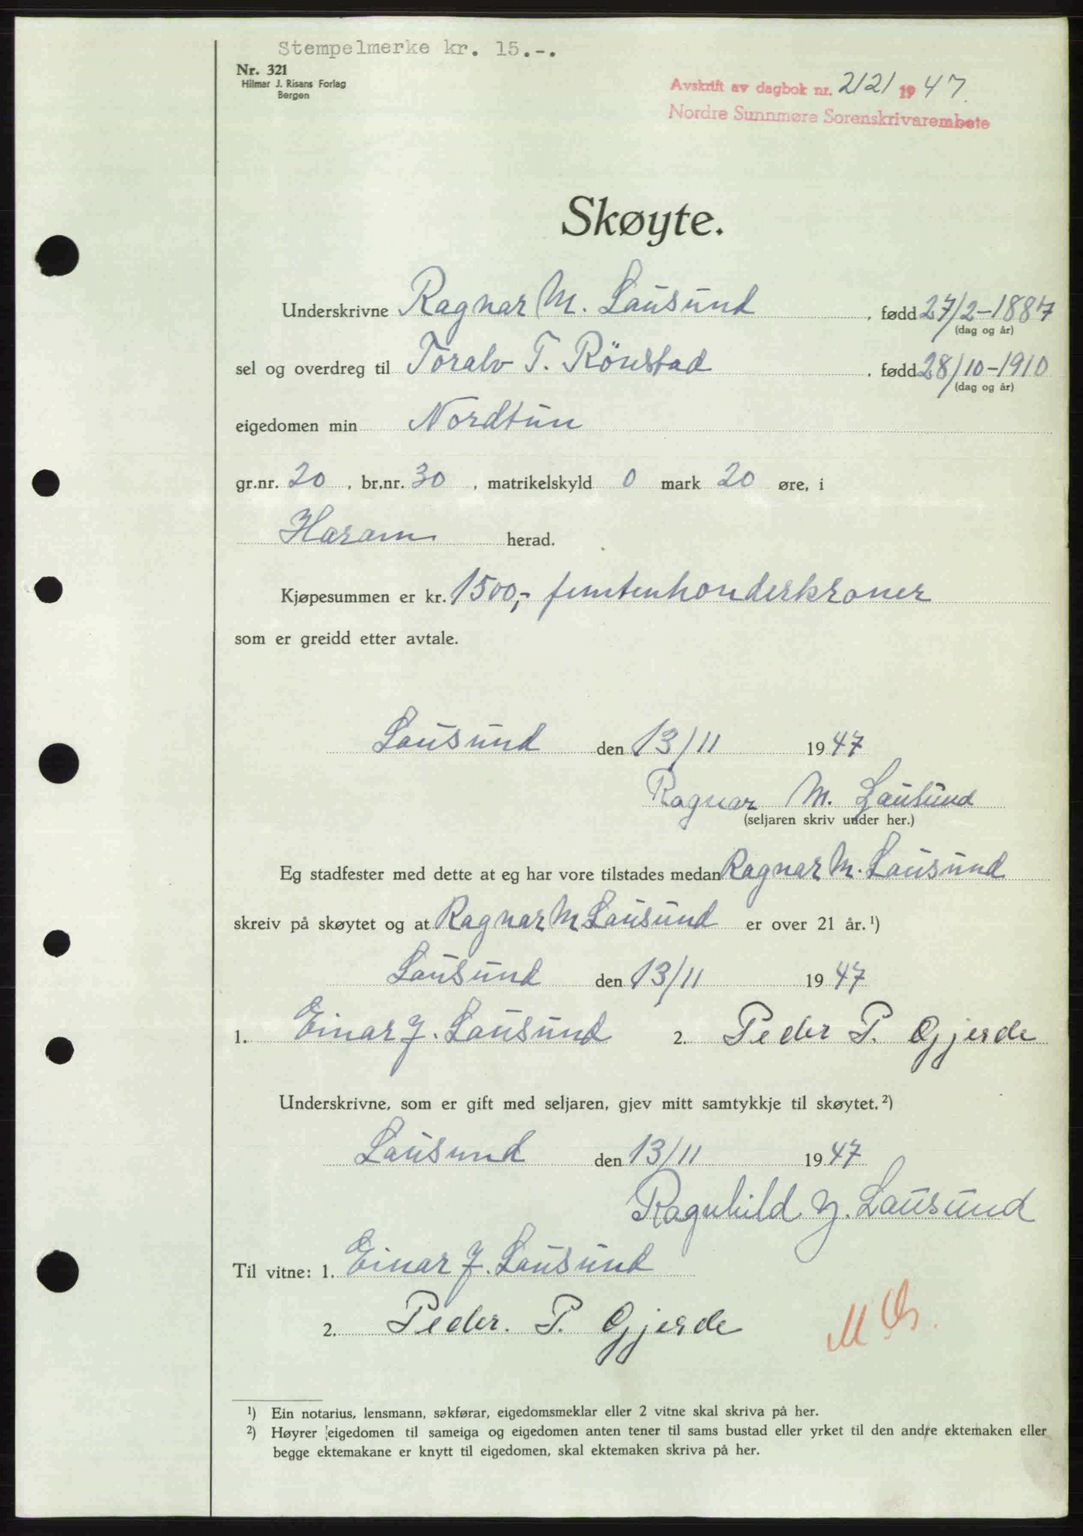 Stempelmerke kr. 15.-.
Nr. 321
Hilmar J. Risans Forlag
Bergen
Avskrift av dagbok nr. 2121 1947.
Nordre Sunnmøre Sorenskrivarembete
Skøyte.
Underskrivne Ragnar M. Lausund, fødd 27/2-1887
(dag og år)
sel og overdreg til Toralv T. Rönstad, fødd 28/10-1910
(dag og år)
eigedomen min Nordtun
gr.nr. 20, br.nr. 30, matrikelskyld 0 mark 20 øre, i
Haram herad.
Kjøpesummen er kr. 1500,- femtenhonderkroner
som er greidd etter avtale.
Lausund den 13/11 1947
Ragnar M. Lausund
(seljaren skriv under her.)
Eg stadfester med dette at eg har vore tilstades medan Ragnar M. Lausund
skreiv på skøytet og at Ragnar M Lausund er over 21 år.¹)
Lausund den 13/11 1947
1. Einar J. Lausund 2. Peder P. Gjerde
Underskrivne, som er gift med seljaren, gjev mitt samtykkje til skøytet.²)
Lausund den 13/11 1947
Ragnhild J. Lausund
Til vitne: 1. Einar J. Lausund
2. Peder. P. Gjerde
¹) Ein notarius, lensmann, sakførar, eigedomsmeklar eller 2 vitne skal skriva på her.
²) Høyrer eigedomen til sameiga og eigedomen anten tener til sams bustad eller yrket til den andre ektemaken eller
begge ektemakane er knytt til eigedomen, skal ektemaken skriva på her.